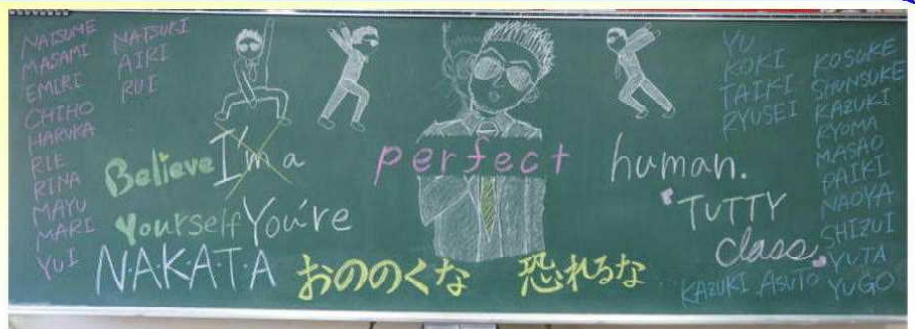 NATSUME
MASAMI
EMIRI
CHIHO
HARUKA
RIE
RINA
MAYU
MARI
YUI
NATSUKI
AIRI
RUI
Believe I'm a perfect human.
Yourself You're
N・A・K・A・T・A
おののくな 恐れるな
"TUTTY
class"
YU
KOKI
TAIKI
RYUSEI
KOSUKE
SHUNSUKE
KAZUKI
RYOMA
MASAO
DAIKI
NAOYA
SHIZUI
YUTA
KAZUKI ASUTO YUGO